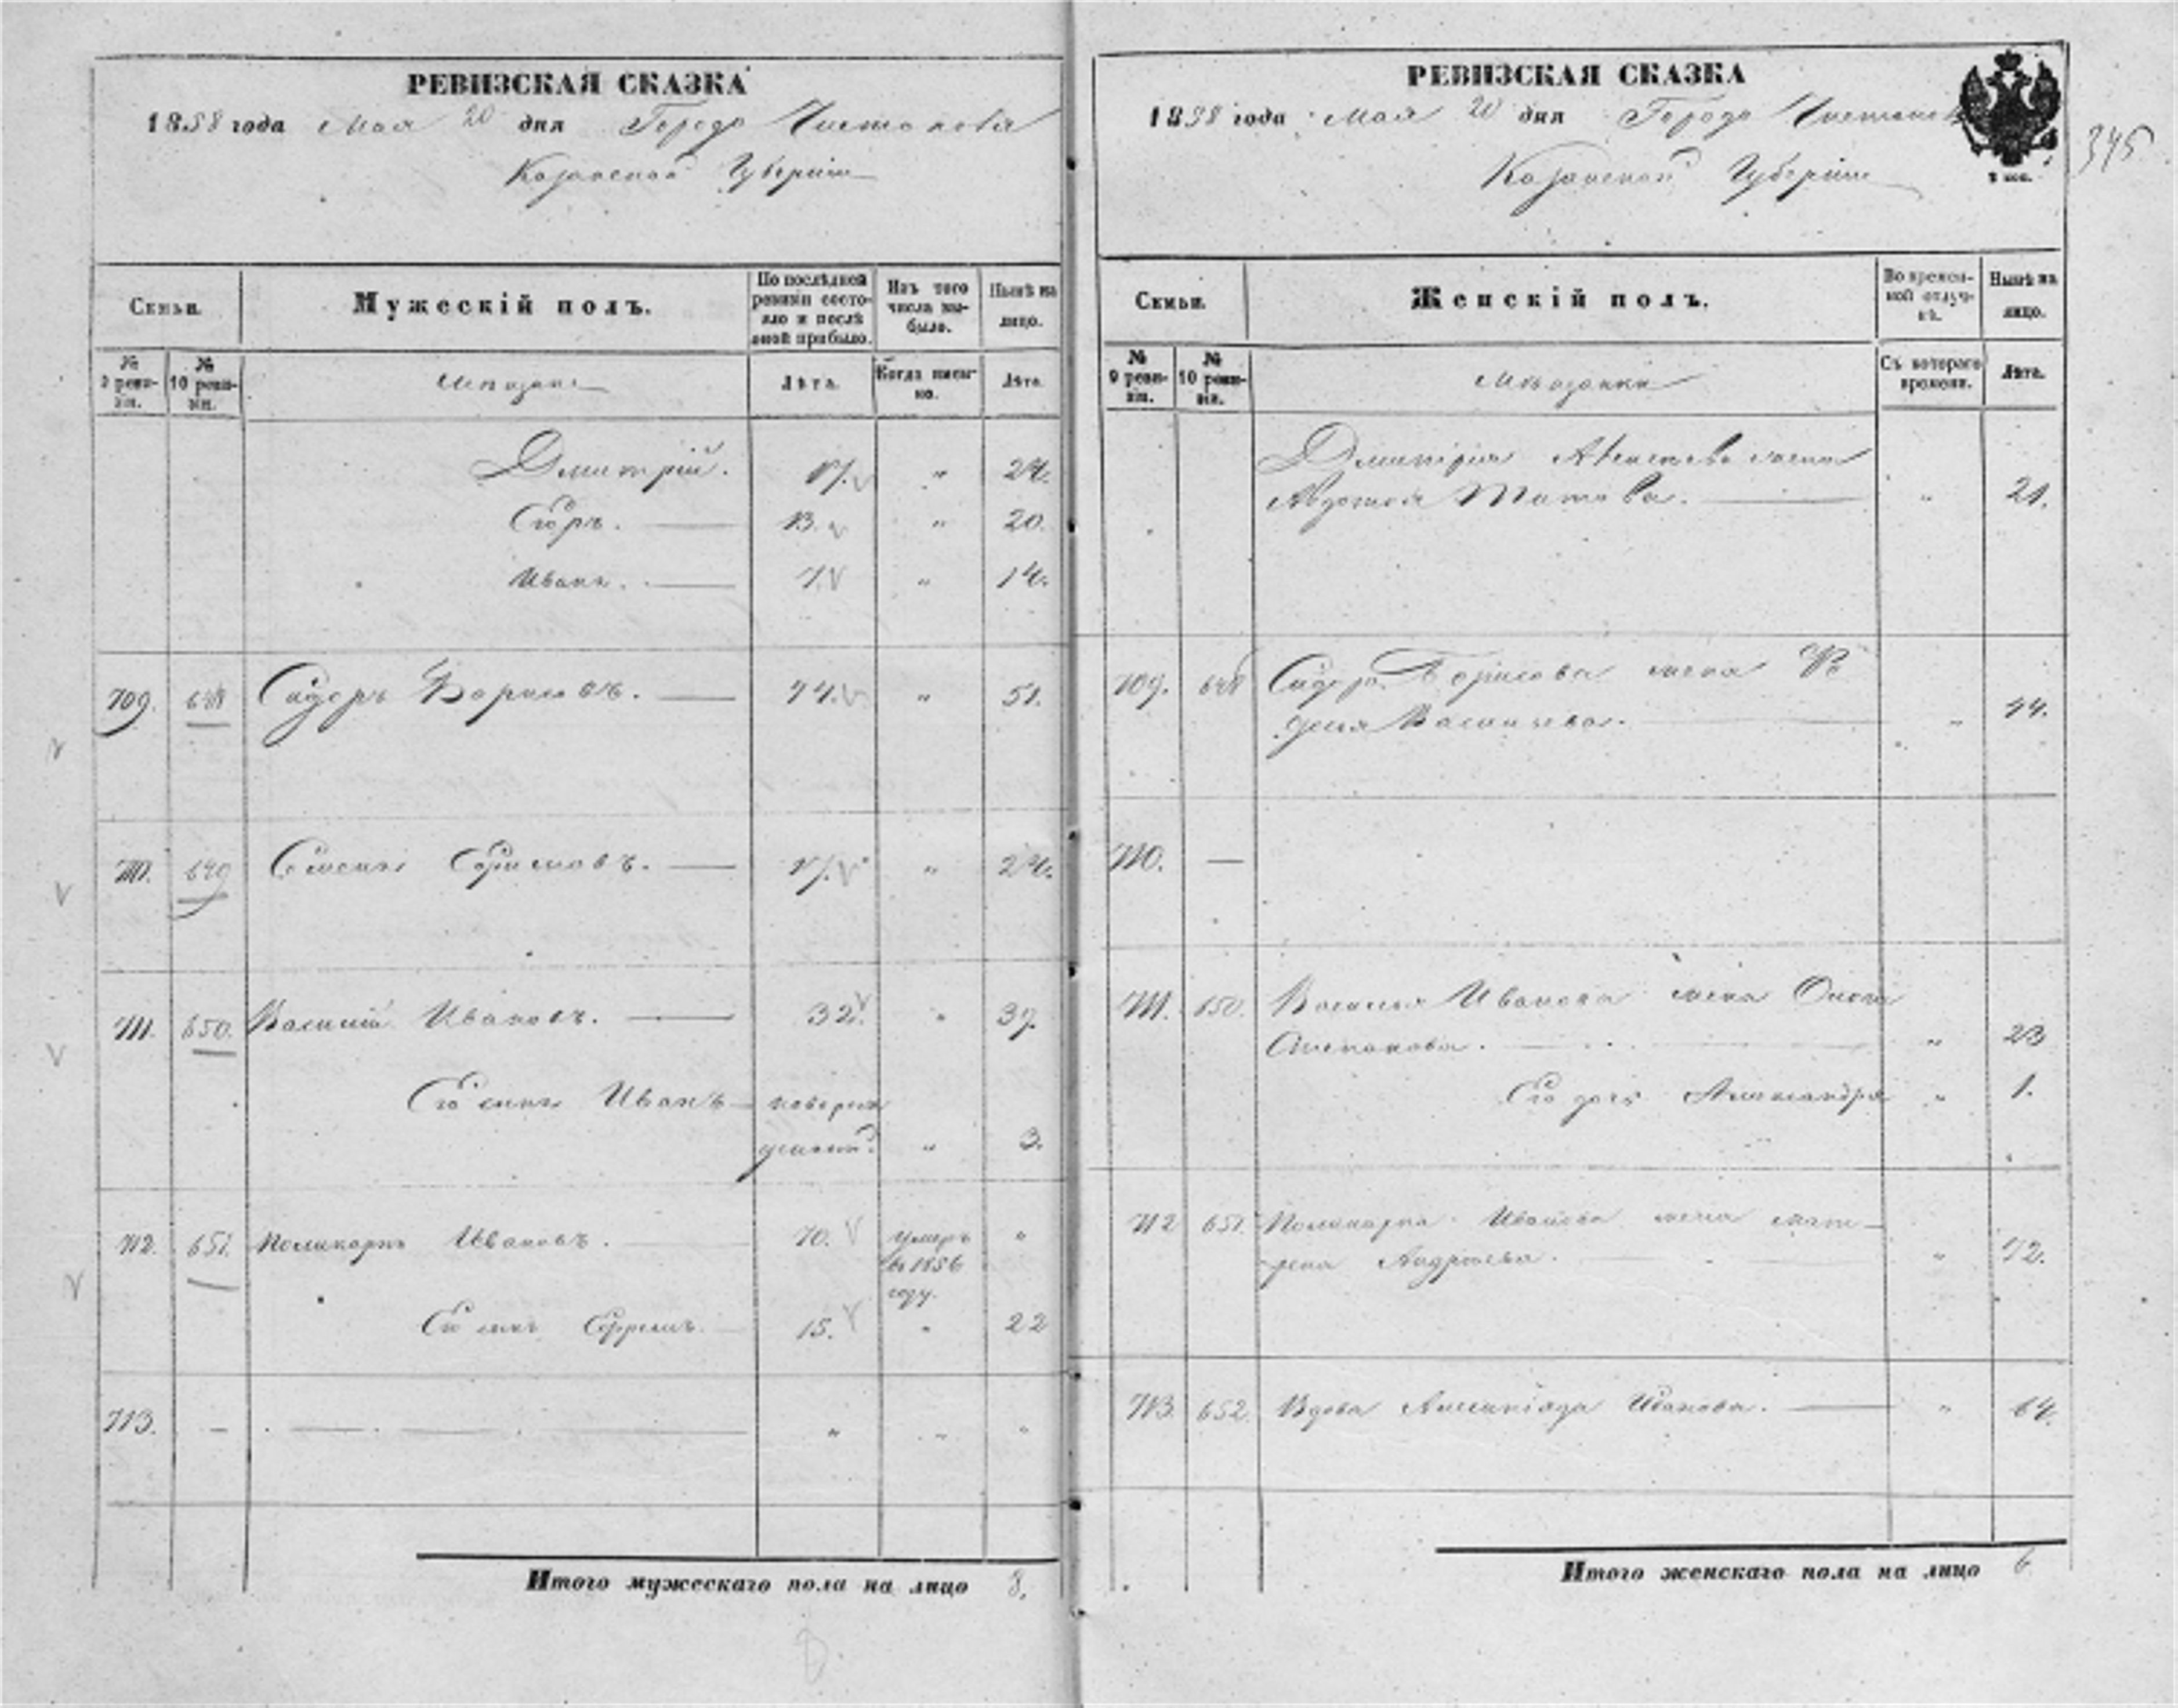 РЕВИЗСКАЯ СКАЗКА
1858 года Мая 20 дня Города Чистополя
Казанской Губернiи
Семьи.
Мужескiй полъ.
По послѣдней ревизiи состояло и послѣ оной прибыло.
Изъ того числа выбыло.
Нынѣ на лицо.
№ 9 ревизiи.
№ 10 ревизiи.
Мѣщане
Лѣта.
Когда именно.
Лѣта.
Дмитрiй. 17. „ 24.
Егоръ. 13. „ 20.
Иванъ. 7. „ 14.
709. 648 Сидоръ Борисовъ. 44. „ 51.
710. 649 Семенъ Ефимовъ. 17. „ 24.
711. 650. Василiй Ивановъ. 32. „ 39.
Его сынъ Иванъ
„ 3.
712. 651. Поликарпъ Ивановъ. 70. умеръ „
въ 1856
году.
Его сынъ Ефремъ. 15. „ 22
713. — „ „ „
Итого мужескаго пола на лицо 8.
РЕВИЗСКАЯ СКАЗКА
1858 года Мая 20 дня Города
Казанской Губернiи
2 коп.
345
Семьи.
Женскiй полъ.
Во временной отлучкѣ.
Нынѣ на лицо.
№ 9 ревизiи.
№ 10 ревизiи.
Мѣщанки
Съ котораго времени.
Лѣта.
Дмитрiя жена
Авдотья „ 21.
709. 648 Сидора Борисова жена Фе
досья Васильева. „ 44.
710. —
711. 650. Василья Иванова жена
„ 23
Его дочь Александра „ 1.
712 651. Поликарпа Иванова жена Мат-
рена Андреева. „ 72.
713. 652. Вдова Иванова. „ 64.
Итого женскаго пола на лицо 6